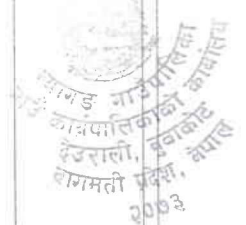 गाउँपालिका
गाउँ कार्यपालिकाको कार्यालय
देउराली, नुवाकोट
बागमती प्रदेश, नेपाल
२०७३